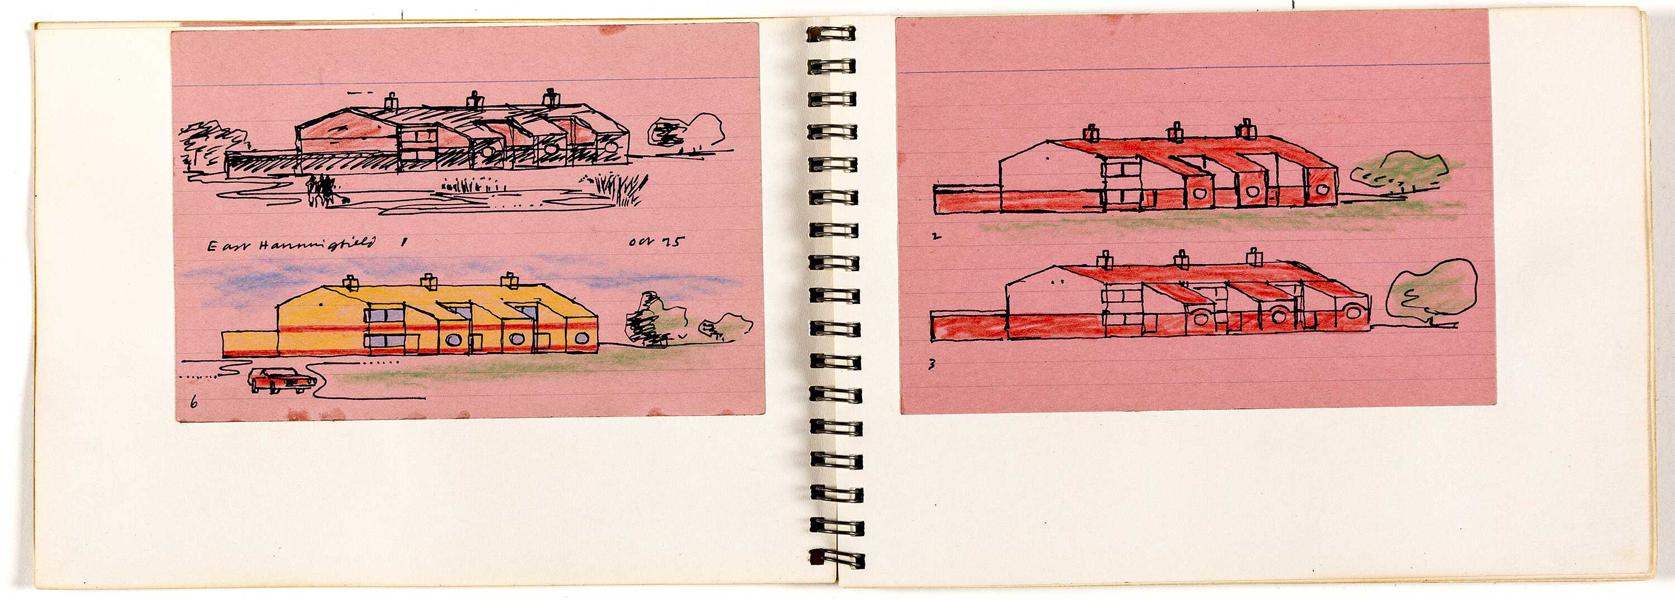 East Hanningfield 1
Oct 75
6
2
3